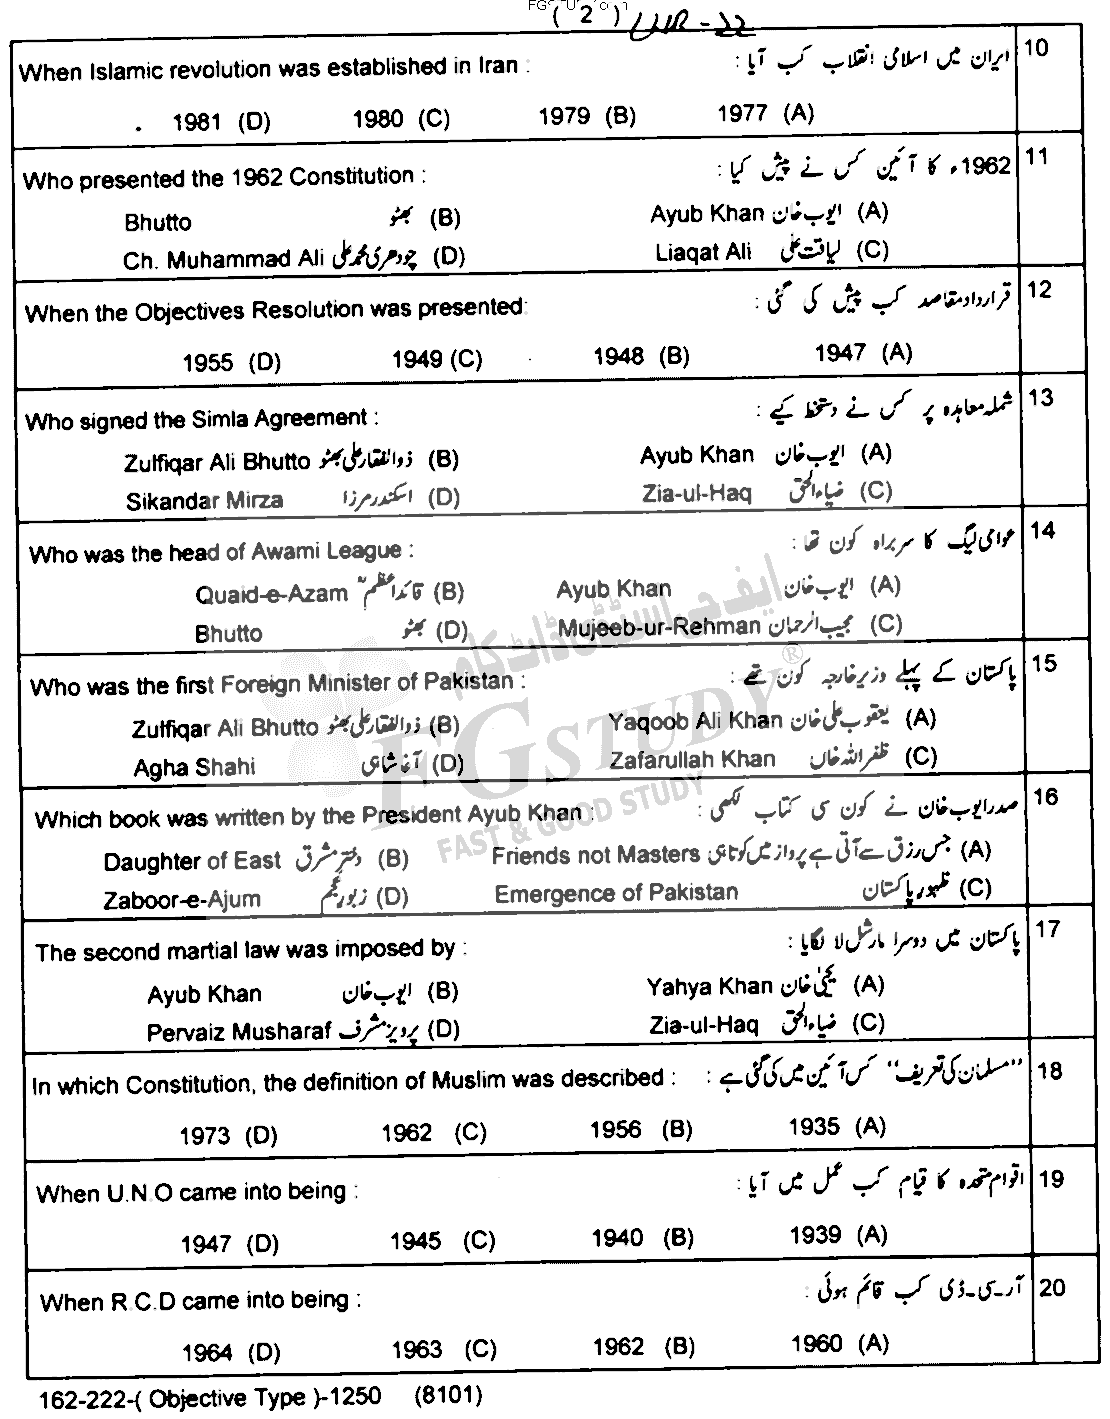 ( 2 )
10 ایران میں اسلامی انقلاب کب آیا : When Islamic revolution was established in Iran :
1981 (D) 1980 (C) 1979 (B) 1977 (A)
11 1962ء کا آئین کس نے پیش کیا : Who presented the 1962 Constitution :
Bhutto بھٹو (B) Ayub Khan ایوب خان (A)
Ch. Muhammad Ali چودھری محمد علی (D) Liaqat Ali لیاقت علی (C)
12 قرارداد مقاصد کب پیش کی گئی : When the Objectives Resolution was presented:
1955 (D) 1949 (C) 1948 (B) 1947 (A)
13 شملہ معاہدہ پر کس نے دستخط کیے : Who signed the Simla Agreement :
Zulfiqar Ali Bhutto ذوالفقار علی بھٹو (B) Ayub Khan ایوب خان (A)
Sikandar Mirza اسکندر مرزا (D) Zia-ul-Haq ضیاء الحق (C)
14 عوامی لیگ کا سربراہ کون تھا : Who was the head of Awami League :
Quaid-e-Azam قائد اعظمؒ (B) Ayub Khan ایوب خان (A)
Bhutto بھٹو (D) Mujeeb-ur-Rehman مجیب الرحمان (C)
15 پاکستان کے پہلے وزیر خارجہ کون تھے : Who was the first Foreign Minister of Pakistan :
Zulfiqar Ali Bhutto ذوالفقار علی بھٹو (B) Yaqoob Ali Khan یعقوب علی خان (A)
Agha Shahi آغا شاہی (D) Zafarullah Khan ظفر اللہ خاں (C)
16 صدر ایوب خان نے کون سی کتاب لکھی : Which book was written by the President Ayub Khan :
Daughter of East دختر مشرق (B) Friends not Masters جس رزق سے آتی ہے پرواز میں کوتاہی (A)
Zaboor-e-Ajum زبور عجم (D) Emergence of Pakistan ظہور پاکستان (C)
17 پاکستان میں دوسرا مارشل لا لگایا : The second martial law was imposed by :
Ayub Khan ایوب خان (B) Yahya Khan یحییٰ خان (A)
Pervaiz Musharaf پرویز مشرف (D) Zia-ul-Haq ضیاء الحق (C)
18 "مسلمان کی تعریف" کس آئین میں کی گئی ہے : In which Constitution, the definition of Muslim was described :
1973 (D) 1962 (C) 1956 (B) 1935 (A)
19 اقوام متحدہ کا قیام کب عمل میں آیا : When U.N.O came into being :
1947 (D) 1945 (C) 1940 (B) 1939 (A)
20 آر۔سی۔ڈی کب قائم ہوئی : When R.C.D came into being :
1964 (D) 1963 (C) 1962 (B) 1960 (A)
162-222-( Objective Type )-1250 (8101)
ایف جی اسٹڈی ڈاٹ کام
FGSTUDY®
FAST & GOOD STUDY